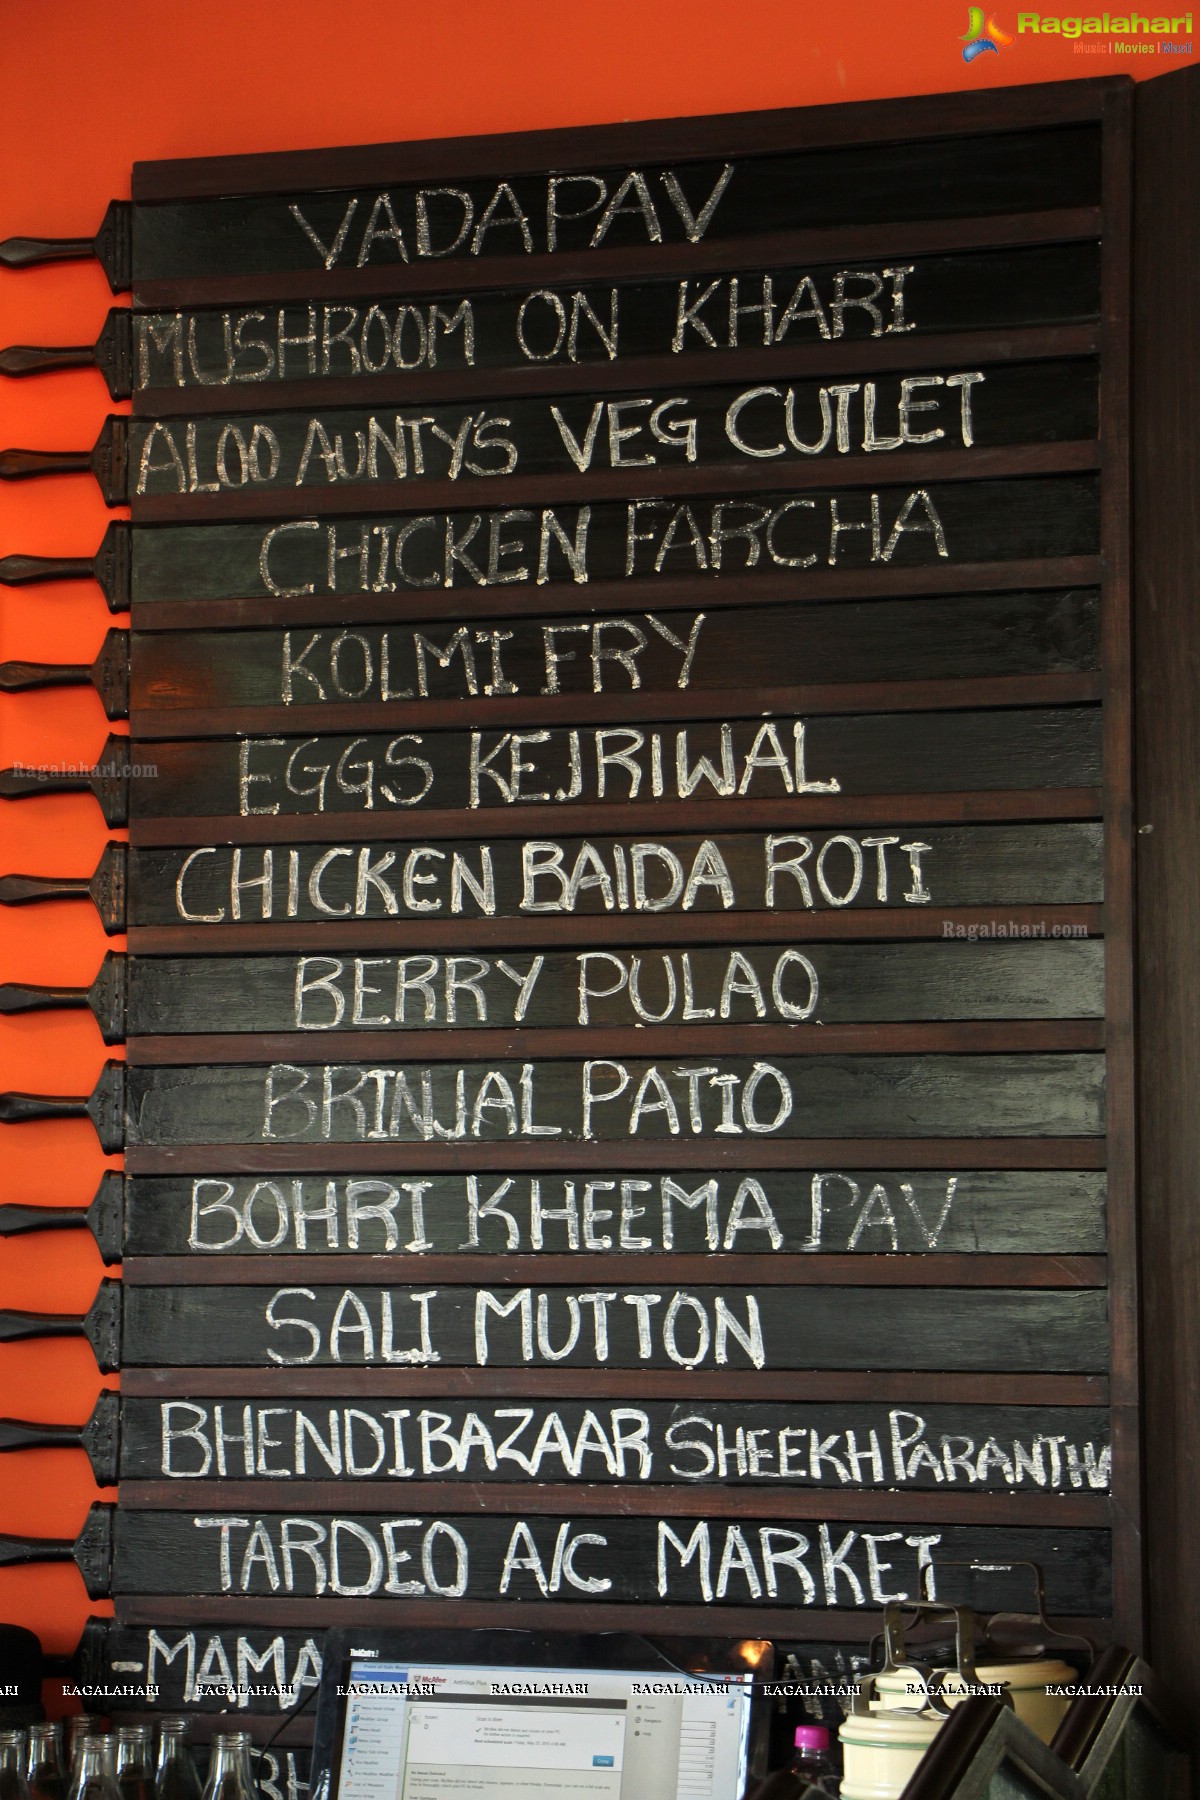 Ragalahari
Music | Movies | Masti
VADAPAV
MUSHROOM ON KHARI
ALOO AUNTY'S VEG CUTLET
CHICKEN FARCHA
KOLMI FRY
EGGS KEJRIWAL
Ragalahari.com
CHICKEN BAIDA ROTI
Ragalahari.com
BERRY PULAO
BRINJAL PATIO
BOHRI KHEEMA PAV
SALI MUTTON
BHENDI BAZAAR SHEEKH PARANTHA
TARDEO A/C MARKET -
-MAMA
McAfee
RAGALAHARI RAGALAHARI RAGALAHARI RAGALAHARI RAGALAHARI RAGALAHARI RAGALAHARI RAGALAHARI